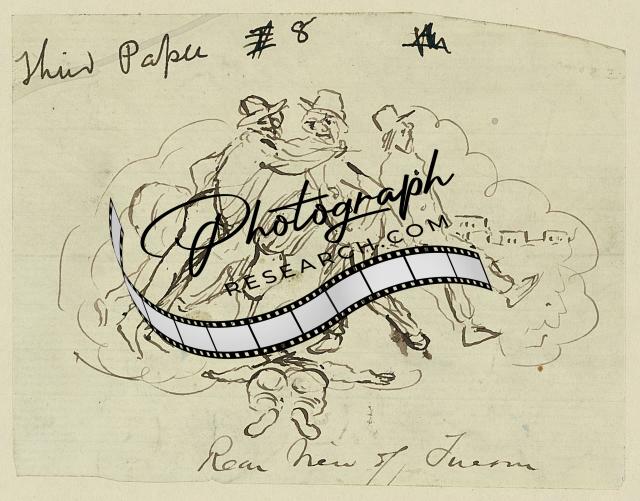 Third Paper # 8
Photograph
RESEARCH.COM
Rear View of Tucson